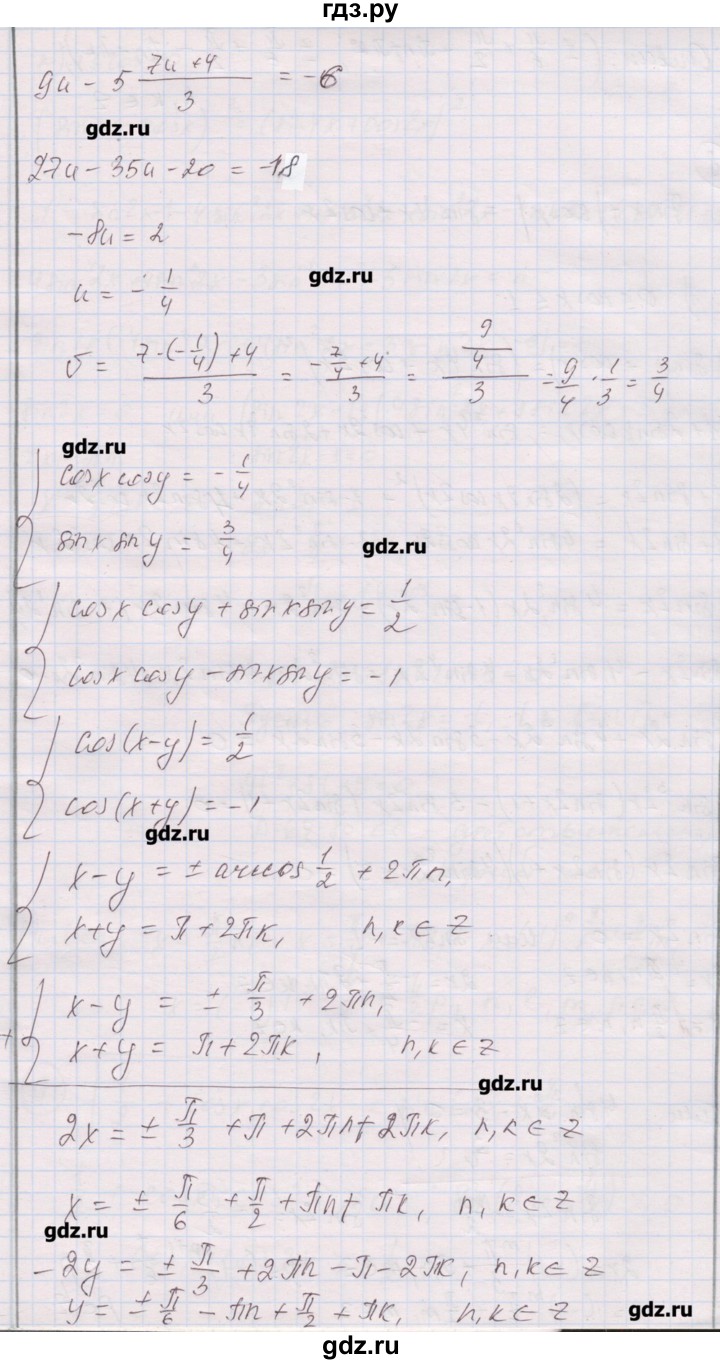 гдз.ру
9u - 5 (7u+4)/3 = -6
gdz.ru
27u - 35u - 20 = -18
-8u = 2
gdz.ru
u = - 1/4
v = (7·(-1/4)+4)/3 = (-7/4+4)/3 = (9/4)/3 = 9/4 · 1/3 = 3/4
gdz.ru
cosx cosy = - 1/4
sinx siny = 3/4
gdz.ru
cosx cosy + sinx siny = 1/2
cosx cosy - sinx siny = -1
cos(x-y) = 1/2
cos(x+y) = -1
gdz.ru
x-y = ± arccos 1/2 + 2πn,
x+y = π + 2πk, n,k ∈ Z
x-y = ± π/3 + 2πn,
+ x+y = π + 2πk, n,k ∈ Z
gdz.ru
2x = ± π/3 + π + 2πn + 2πk, n,k ∈ Z
x = ± π/6 + π/2 + πn + πk, n,k ∈ Z
gdz.ru
-2y = ± π/3 + 2πn - π - 2πk, n,k ∈ Z
y = ± π/6 - πn + π/2 + πk, n,k ∈ Z
gdz.ru
gdz.ru